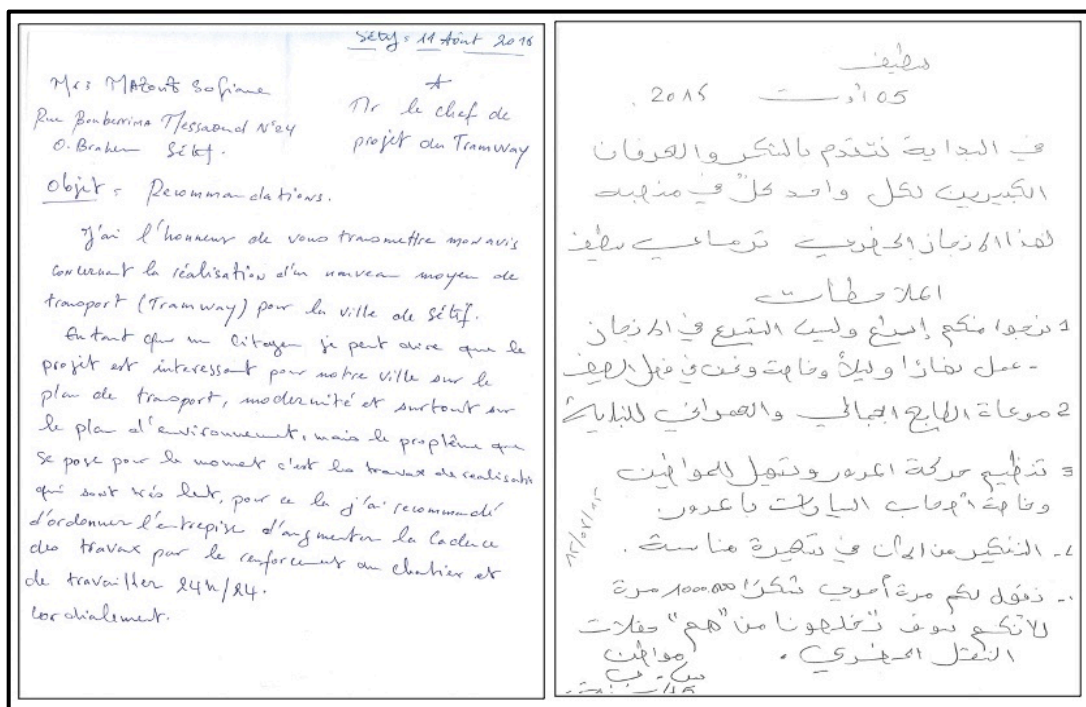 Sétif = 11 Août 2016
Mrs MAZOUZ Sofiane
Rue Bouberrima Messaoud N°24
O. Braham Sétif.
Mr le chef de
projet du Tramway
Objet = Recommandations.
J'ai l'honneur de vous transmettre mon avis
concernant la réalisation d'un nouveau moyen de
transport (Tramway) pour la ville de Sétif.
En tant que un Citoyen je peut dire que le
projet est interessant pour notre ville sur le
plan de transport, modernité et surtout sur
le plan d'environnement, mais le proplème que
se pose pour le moment c'est les travax de realisatio
qui sont très lent, pour ce la j'ai recommandé
d'ordonner l'entrepise d'augmenter la Cadence
des travax par le renforcement du chatier et
de travailler 24h/24.
Cordialement.
سطيف
05 أوت
في البداية نتقدم بالشكر والعرفان
الكبيرين لكل واحد كلٌ في منصبه
لهذا الانجاز الحضري ترماعي سطيف
الملاحظات
1 نرجوا منكم إسراع وليس التسرع في الانجاز
- عمل نهارًا وليلاً وخاصة ونحن في فصل الصيف
2 مرعاة الطابع الجمالي والعمراني للبلدية
3 تنظيم حركة المرور وتسهيل للمواطنين
وخاصة أصحاب السيارات بالمرور
4- التفكير من الآن في تسعيرة مناسبة.
- نقول لكم مرة أخرى شكرًا 1000.000 مرة
لأنكم سوف تخلصونا من "هم" حفلات
النقل الحضري.
مواطن